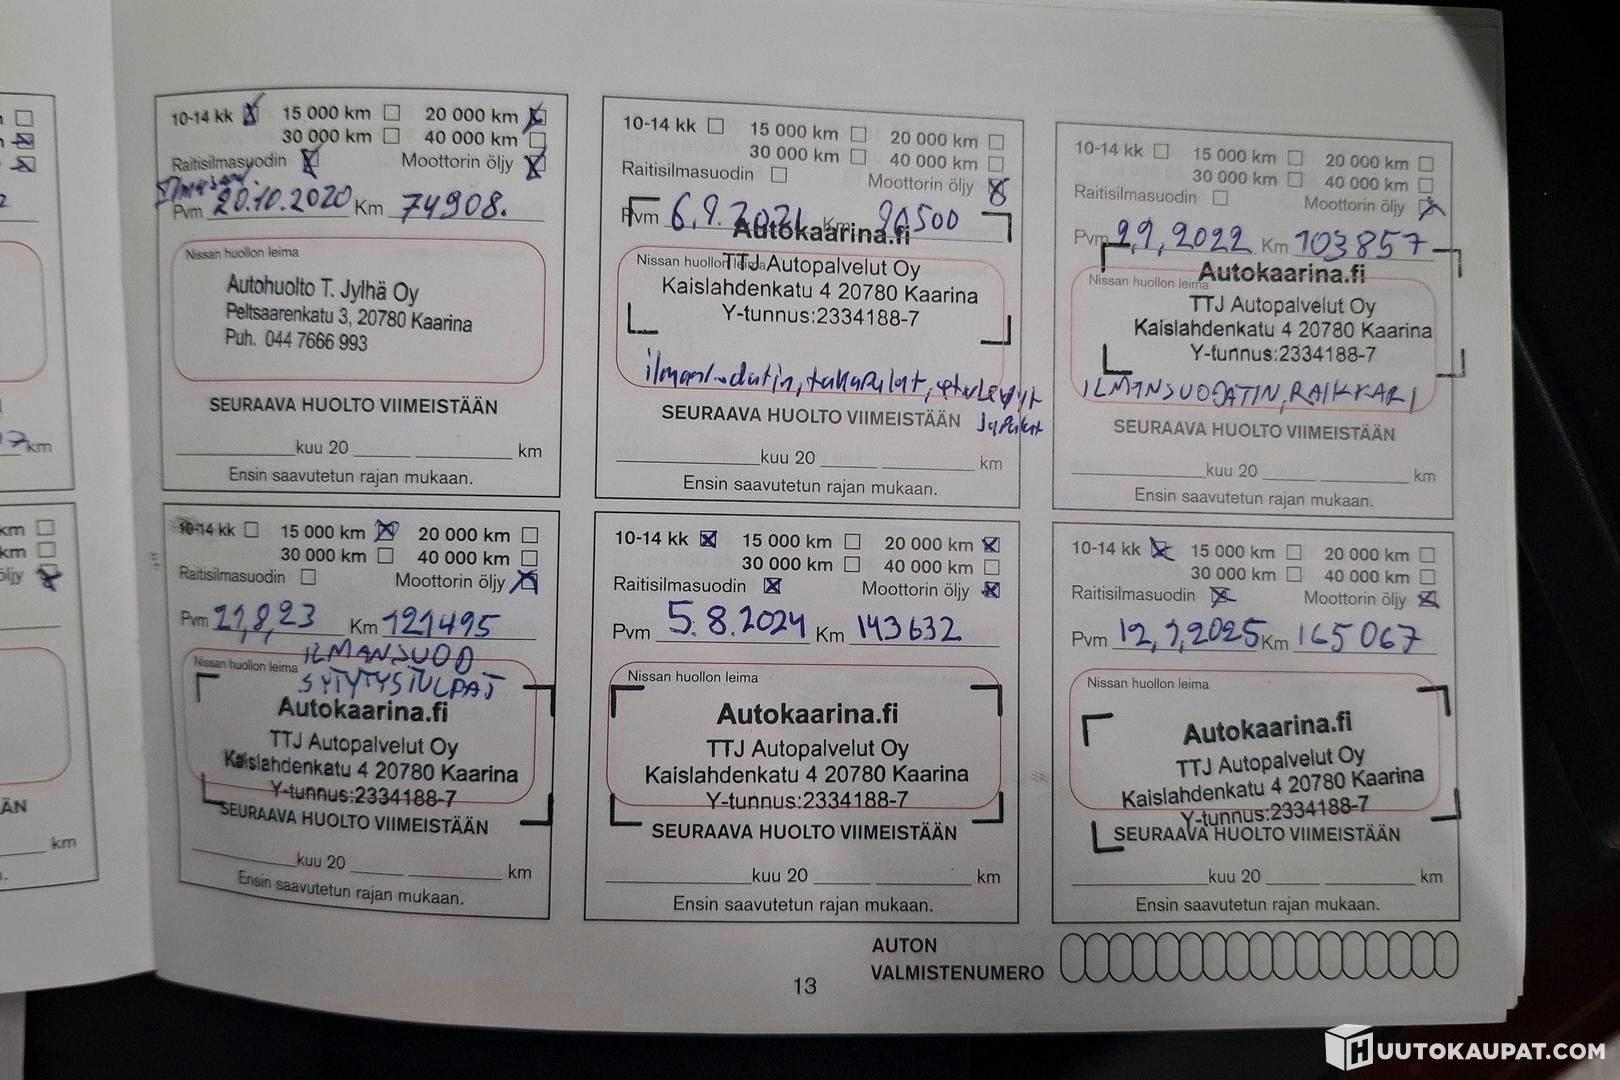 10-14 kk 15 000 km 20 000 km
30 000 km 40 000 km
Raitisilmasuodin Moottorin öljy
Pvm 20.10.2020 Km 74908.
Nissan huollon leima
Autohuolto T. Jylhä Oy
Peltsaarenkatu 3, 20780 Kaarina
Puh. 044 7666 993
SEURAAVA HUOLTO VIIMEISTÄÄN
kuu 20 km
Ensin saavutetun rajan mukaan.
10-14 kk 15 000 km 20 000 km
30 000 km 40 000 km
Raitisilmasuodin Moottorin öljy
Pvm 6.9.2021 Km 90500
Autokaarina.fi
Nissan huollon leima
TTJ Autopalvelut Oy
Kaislahdenkatu 4 20780 Kaarina
Y-tunnus:2334188-7
SEURAAVA HUOLTO VIIMEISTÄÄN
kuu 20 km
Ensin saavutetun rajan mukaan.
10-14 kk 15 000 km 20 000 km
30 000 km 40 000 km
Raitisilmasuodin Moottorin öljy
Pvm 2,9,2022 Km 103857
Autokaarina.fi
Nissan huollon leima
TTJ Autopalvelut Oy
Kaislahdenkatu 4 20780 Kaarina
Y-tunnus:2334188-7
ILMANSUODATIN, RAIKKARI
SEURAAVA HUOLTO VIIMEISTÄÄN
kuu 20 km
Ensin saavutetun rajan mukaan.
10-14 kk 15 000 km 20 000 km
30 000 km 40 000 km
Raitisilmasuodin Moottorin öljy
Pvm 21,8,23 Km 121495
ILMANSUOD
Nissan huollon leima
SYTYTYSTULPAT
Autokaarina.fi
TTJ Autopalvelut Oy
Kaislahdenkatu 4 20780 Kaarina
Y-tunnus:2334188-7
SEURAAVA HUOLTO VIIMEISTÄÄN
kuu 20 km
Ensin saavutetun rajan mukaan.
10-14 kk 15 000 km 20 000 km
30 000 km 40 000 km
Raitisilmasuodin Moottorin öljy
Pvm 5.8.2024 Km 143632
Nissan huollon leima
Autokaarina.fi
TTJ Autopalvelut Oy
Kaislahdenkatu 4 20780 Kaarina
Y-tunnus:2334188-7
SEURAAVA HUOLTO VIIMEISTÄÄN
kuu 20 km
Ensin saavutetun rajan mukaan.
10-14 kk 15 000 km 20 000 km
30 000 km 40 000 km
Raitisilmasuodin Moottorin öljy
Pvm 12,9,2025 Km 165067
Nissan huollon leima
Autokaarina.fi
TTJ Autopalvelut Oy
Kaislahdenkatu 4 20780 Kaarina
Y-tunnus:2334188-7
SEURAAVA HUOLTO VIIMEISTÄÄN
kuu 20 km
Ensin saavutetun rajan mukaan.
AUTON
VALMISTENUMERO
13
HUUTOKAUPAT.COM